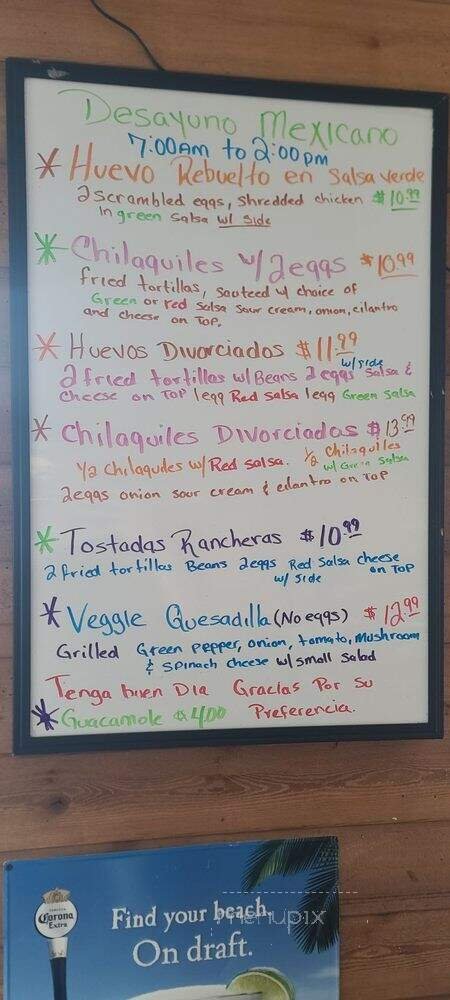 Desayuno Mexicano
7:00Am to 2:00pm
* Huevo Rebuelto en Salsa verde
2 scrambled eggs, shredded chicken $10.99
in green salsa w/ side
* Chilaquiles w/ 2eggs $10.99
fried tortillas, sauteed w/ choice of
Green or red salsa sour cream, onion, cilantro
and cheese on Top.
* Huevos Divorciados $11.99
w/side
2 fried tortillas w/Beans 2 eggs Salsa &
cheese on Top 1egg Red salsa 1egg Green salsa
* Chilaquiles Divorciadas $13.99
1/2 Chilaquiles w/ Red salsa. 1/2 Chilaquiles
w/ Green Salsa
2eggs onion sour cream & cilantro on TOP
* Tostadas Rancheras $10.99
2 fried tortillas Beans 2eggs Red Salsa cheese
w/ side on Top
* Veggie Quesadilla (No eggs) $12.99
Grilled Green pepper, onion, tomato, Mushroom
& spinach cheese w/ small salad
Tenga buen Dia Gracias Por Su
* Guacamole $4.00 Preferencia.
Corona
Extra
Find your beach.
On draft.
menupix